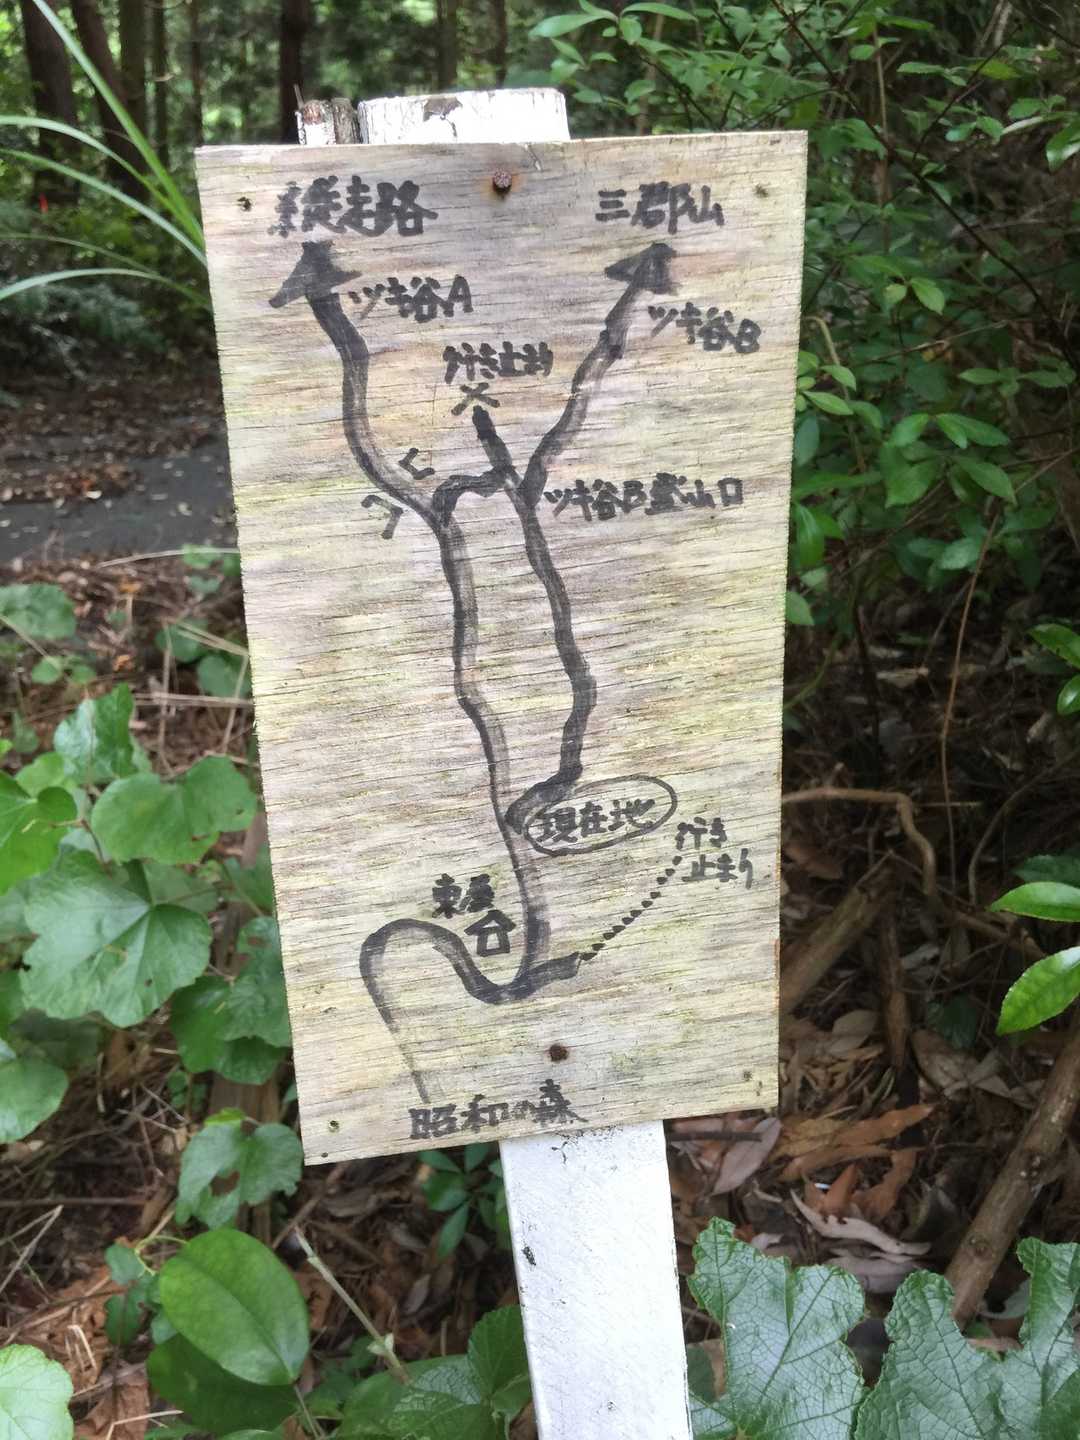 縦走路
三郡山
ツキ谷A
ツキ谷B
行き止り
ツキ谷B登山口
現在地
行き
止まり
東屋
昭和の森